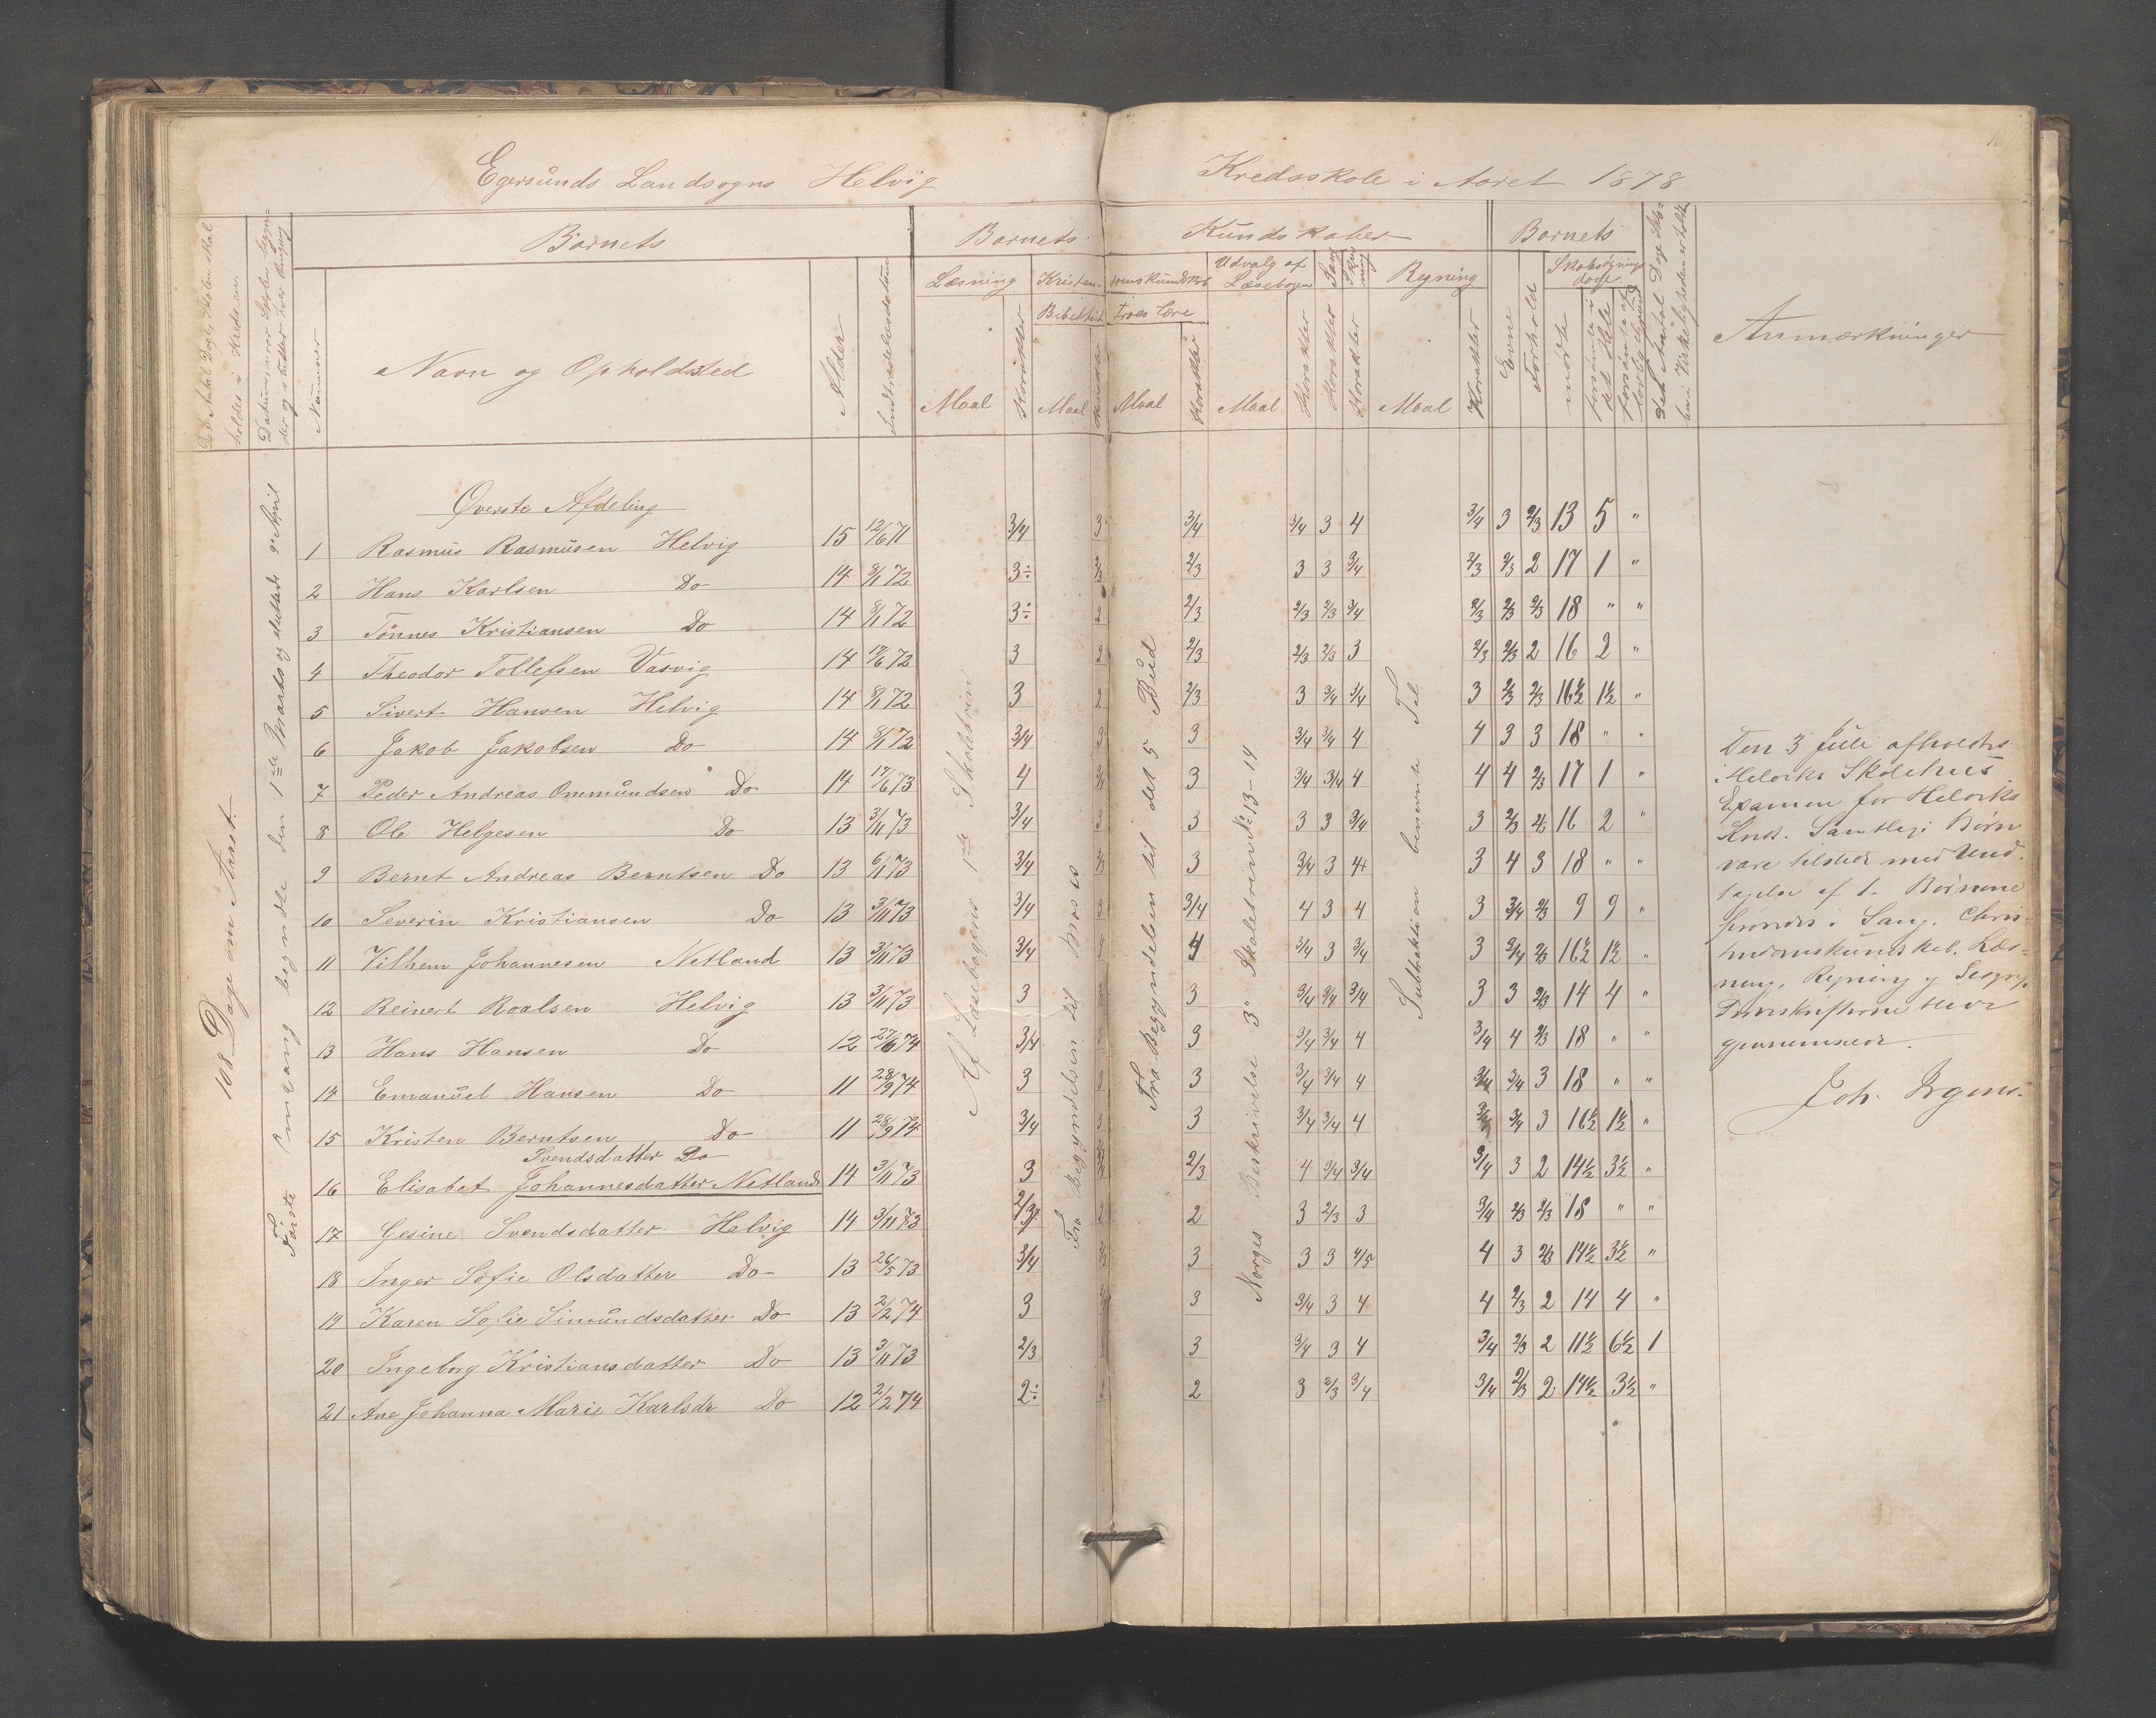 Egersunds Landsogns Helvig Kredsskole i Aaret 1878
Det Antal Dage, Skolen skal holdes i Kredsen
Datum, naar Skolen begynder og slutter hver Omgang
Nummer
Barnets
Navn og Opholdssted
Alder
Indtrædelsesdatum
Barnets Kundskaber
Læsning
Maal
Karakter
Kristendomskundskab
Bibelhist
Maal
Troes Lære
Maal
Karakter
Udvalg af Læsebogen
Maal
Karakter
Sang
Karakter
Skrivning
Karakter
Regning
Maal
Karakter
Barnets
Evne
Forhold
Skolesøgnings dage
mødte
forsømte i det Hele
forsømte af lovlig Grund
Det Antal Dage Skolen i Virkeligheden er holdt
Anmærkninger
108 Dage om Aaret.
Første Omgang begyndte den 1ste Marts og sluttede 9de April
Af Læsebogens 1ste Skoletrin
Fra Begyndelsen til Moses
Fra Begyndelsen til det 5 Bud
Norges Beskrivelse 3" Skoletrin No 13-14
Subtraktion benevnte Tal
Øverste Afdeling
1 Rasmus Rasmusen Helvig 15 12/6 71 3/4 3 3/4 3/4 3 4 3/4 3 2/3 13 5 "
2 Hans Karlsen Do 14 8/1 72 3÷ 2/3 2/3 3 3 3/4 2/3 2/3 2 17 1 "
3 Tönnes Kristiansen Do 14 8/1 72 3÷ 2 2/3 2/3 2/3 3/4 2/3 2/3 2/3 18 " "
4 Theodor Tollefsen Vasvig 14 17/6 72 3 2 2/3 2/3 2/3 3 2/3 2/3 2 16 2 "
5 Sivert Hansen Helvig 14 8/1 72 3 2 2/3 3 3/4 3/4 3 2/3 2/3 16½ 1½ "
6 Jakob Jakobsen Do 14 8/1 72 3/4 3 3 3/4 3/4 4 4 3 3 18 " "
7 Peder Andreas Ommundsen Do 14 17/6 73 4 3/4 3 3/4 3/4 4 4 4 2/3 17 1 "
8 Ole Helgesen Do 13 3/11 73 3/4 3 3 3 3 3/4 3 2/3 2/3 16 2 "
9 Bernt Andreas Berntsen Do 13 6/1 73 3/4 2/3 3 3/4 3 4+ 3 4 3 18 " "
10 Severin Kristiansen Do 13 3/11 73 3/4 3 3/4 4 3 4 3 3/4 2/3 9 9 "
11 Vilhem Johannesen Netland 13 3/11 73 3/4 4 4 3/4 3 3/4 3 3/4 2/3 16½ 1½ "
12 Reinert Roalsen Helvig 13 3/11 73 3 3 3/4 3/4 3/4 3 3 2/3 14 4 "
13 Hans Hansen Do 12 27/6 74 3/4 3 3/4 3/4 4 3/4 4 2/3 18 " "
14 Emanuel Hansen Do 11 28/9 74 3 3 3 3/4 3/4 4 3/4 3/4 3 18 " "
15 Kristen Berntsen Do 11 28/9 74 3/4 3 3 3/4 3/4 4 3/4 3/4 3 16½ 1½ "
Svendsdatter Do
16 Elisabet Johannesdatter Netland 14 3/11 73 3 2/3 4 3/4 3/4 3/4 3 2 14½ 3½ "
17 Gesine Svendsdatter Helvig 14 3/11 73 2/3 2 2 3 2/3 3 3/4 2/3 2/3 18 " "
18 Inger Sofie Olsdatter Do 13 26/5 73 3/4 3 3 3 4/5 4 3 2/3 14½ 3½ "
19 Karen Sofie Simundsdatter Do 13 2/2 74 3 3 3/4 3 4 4 2/3 2 14 4 "
20 Ingeborg Kristiansdatter Do 13 3/11 73 2/3 3 3/4 3 4 3/4 2/3 2 11½ 6½ 1
21 Ane Johanna Marie Karlsdr Do 12 2/2 74 2÷ 2 2 3 2/3 3/4 3/4 2/3 2 14½ 3½ "
Den 3 Juli afholdtes
i Helviks Skolehus
Examen for Helviks
Krds. Samtlige Børn
vare tilstede med Und
tagelse af 1. Børnene
prøvedes i Sang, Chris-
tendomskundskab, Læs-
ning, Regning og
Prøveskrifterne bleve
gjennemseede.
Joh. Irgens.